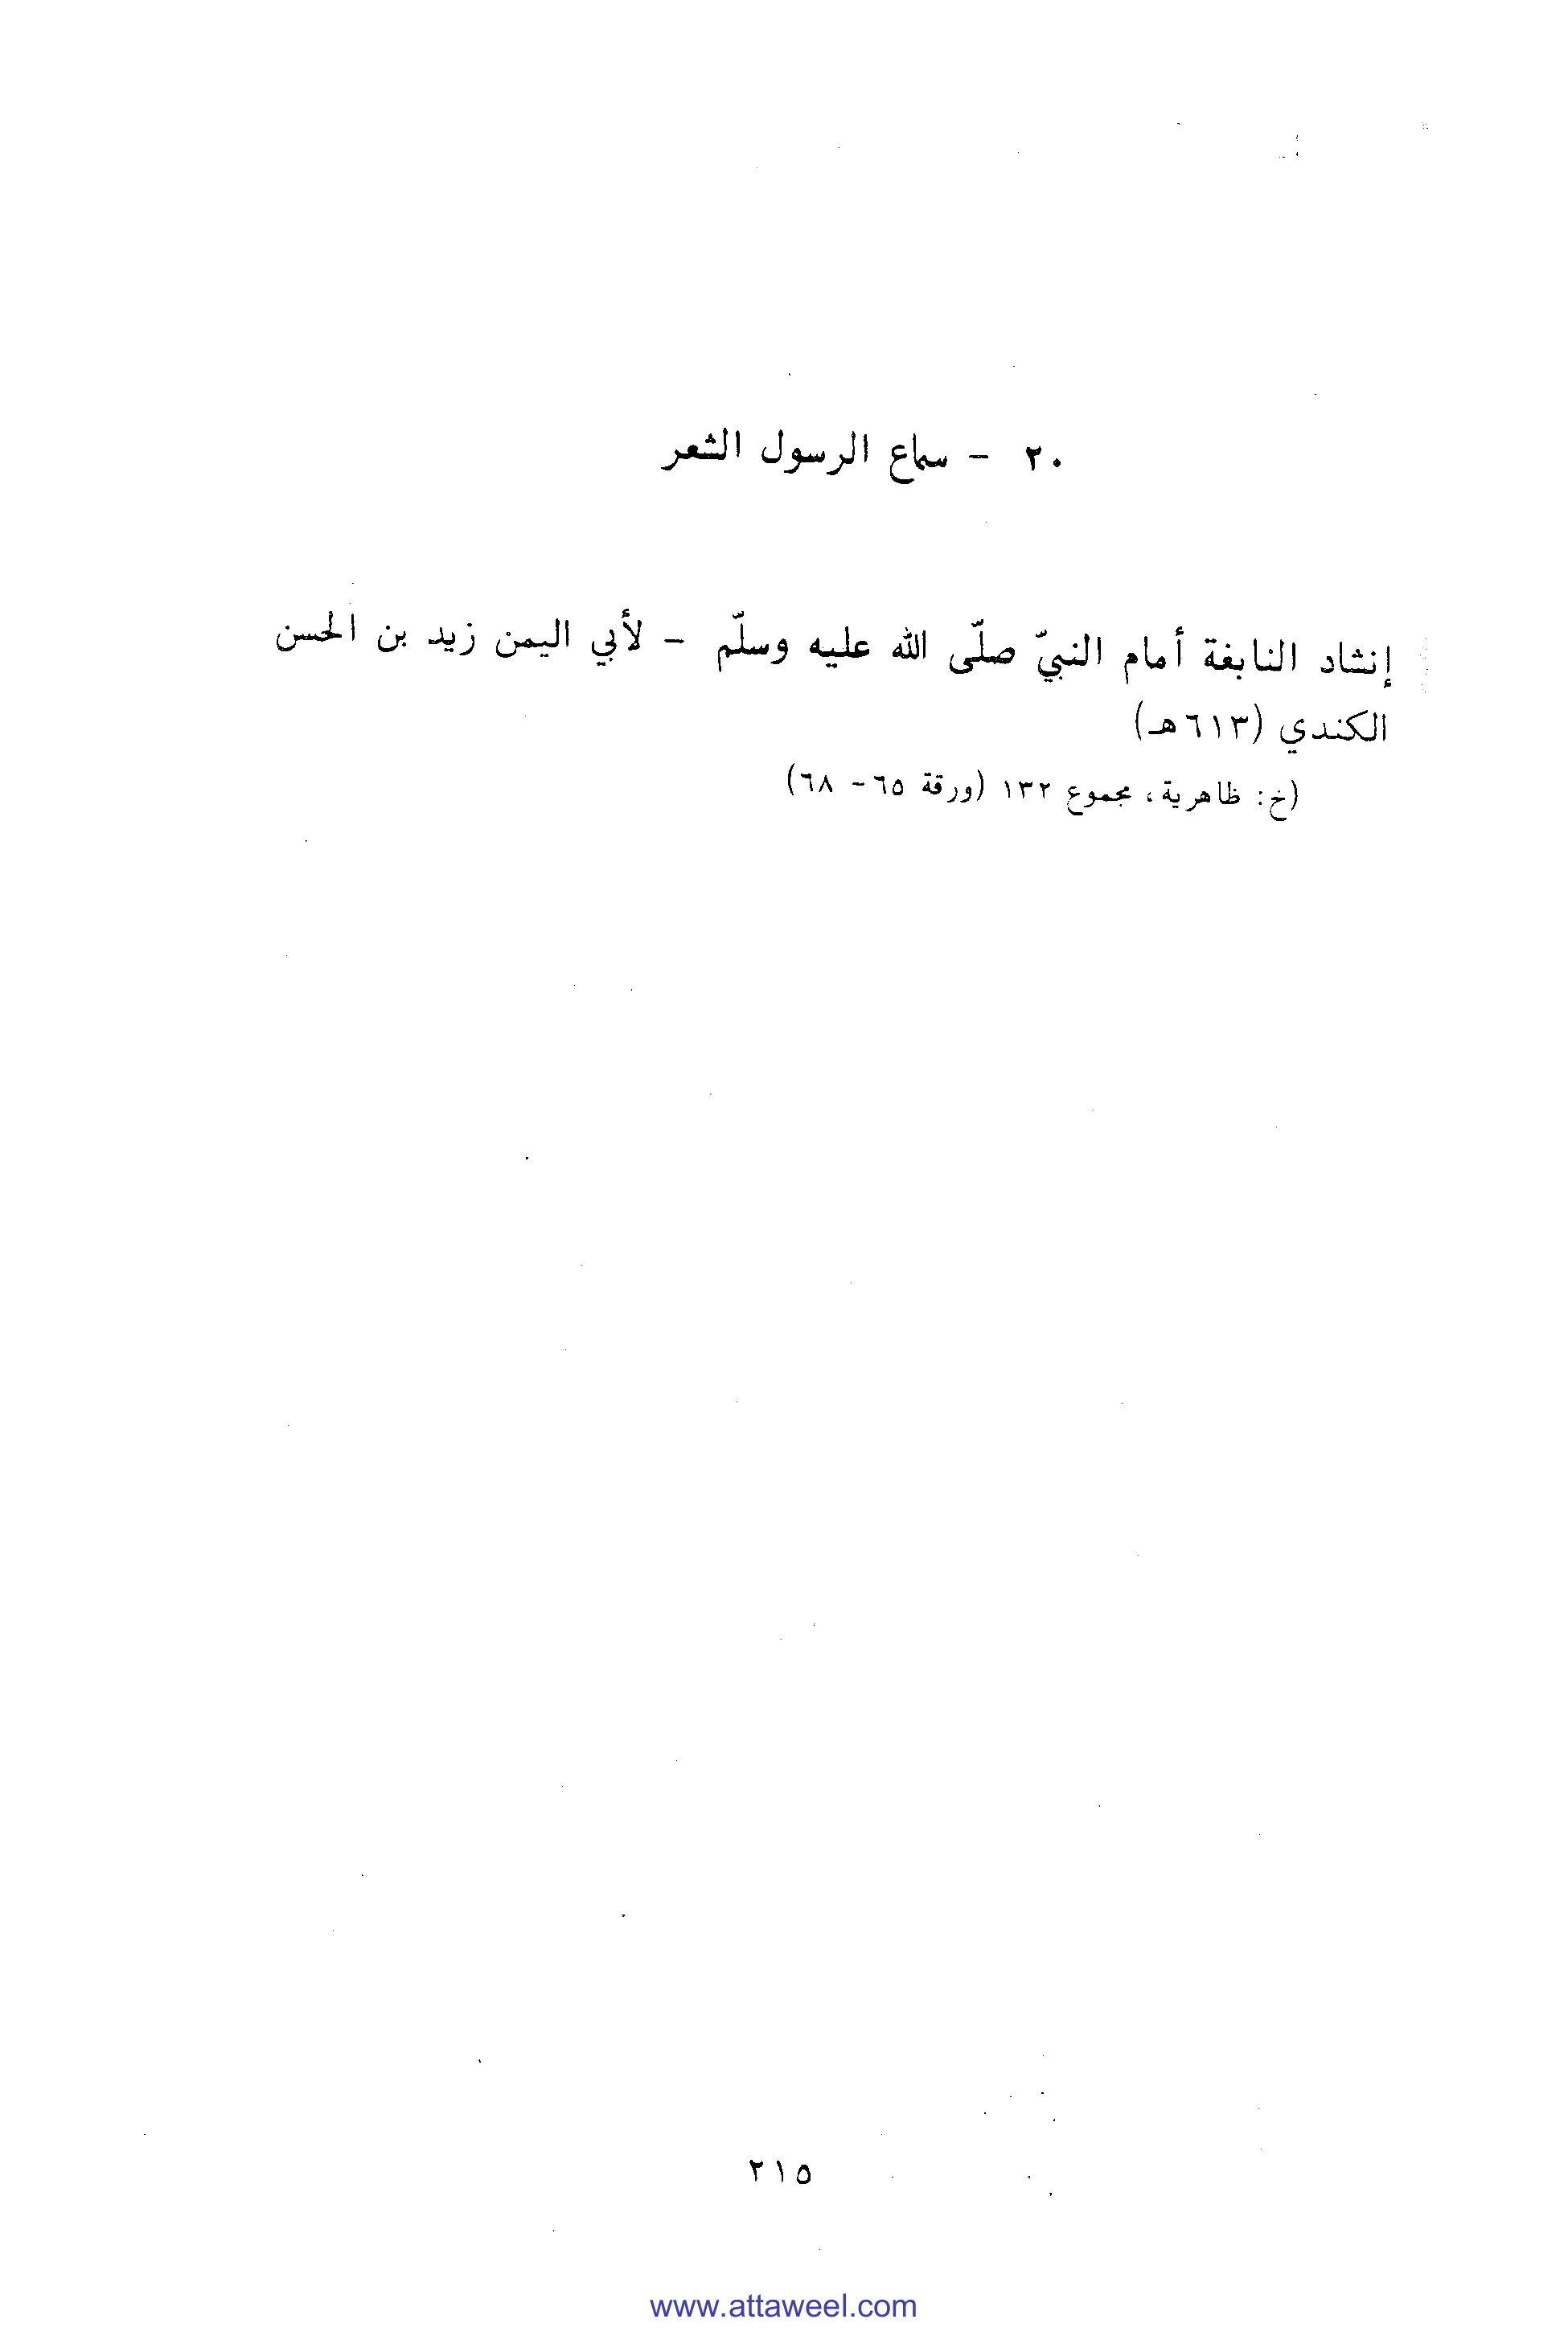 ٢٠ - سماع الرسول الشعر
إنشاد النابغة أمام النبيّ صلّى الله عليه وسلّم - لأبي اليمن زيد بن الحسن
الكندي (٦١٣هـ)
(خ: ظاهرية، مجموع ١٣٢ (ورقة ٦٥ - ٦٨)
٢١٥
www.attaweel.com